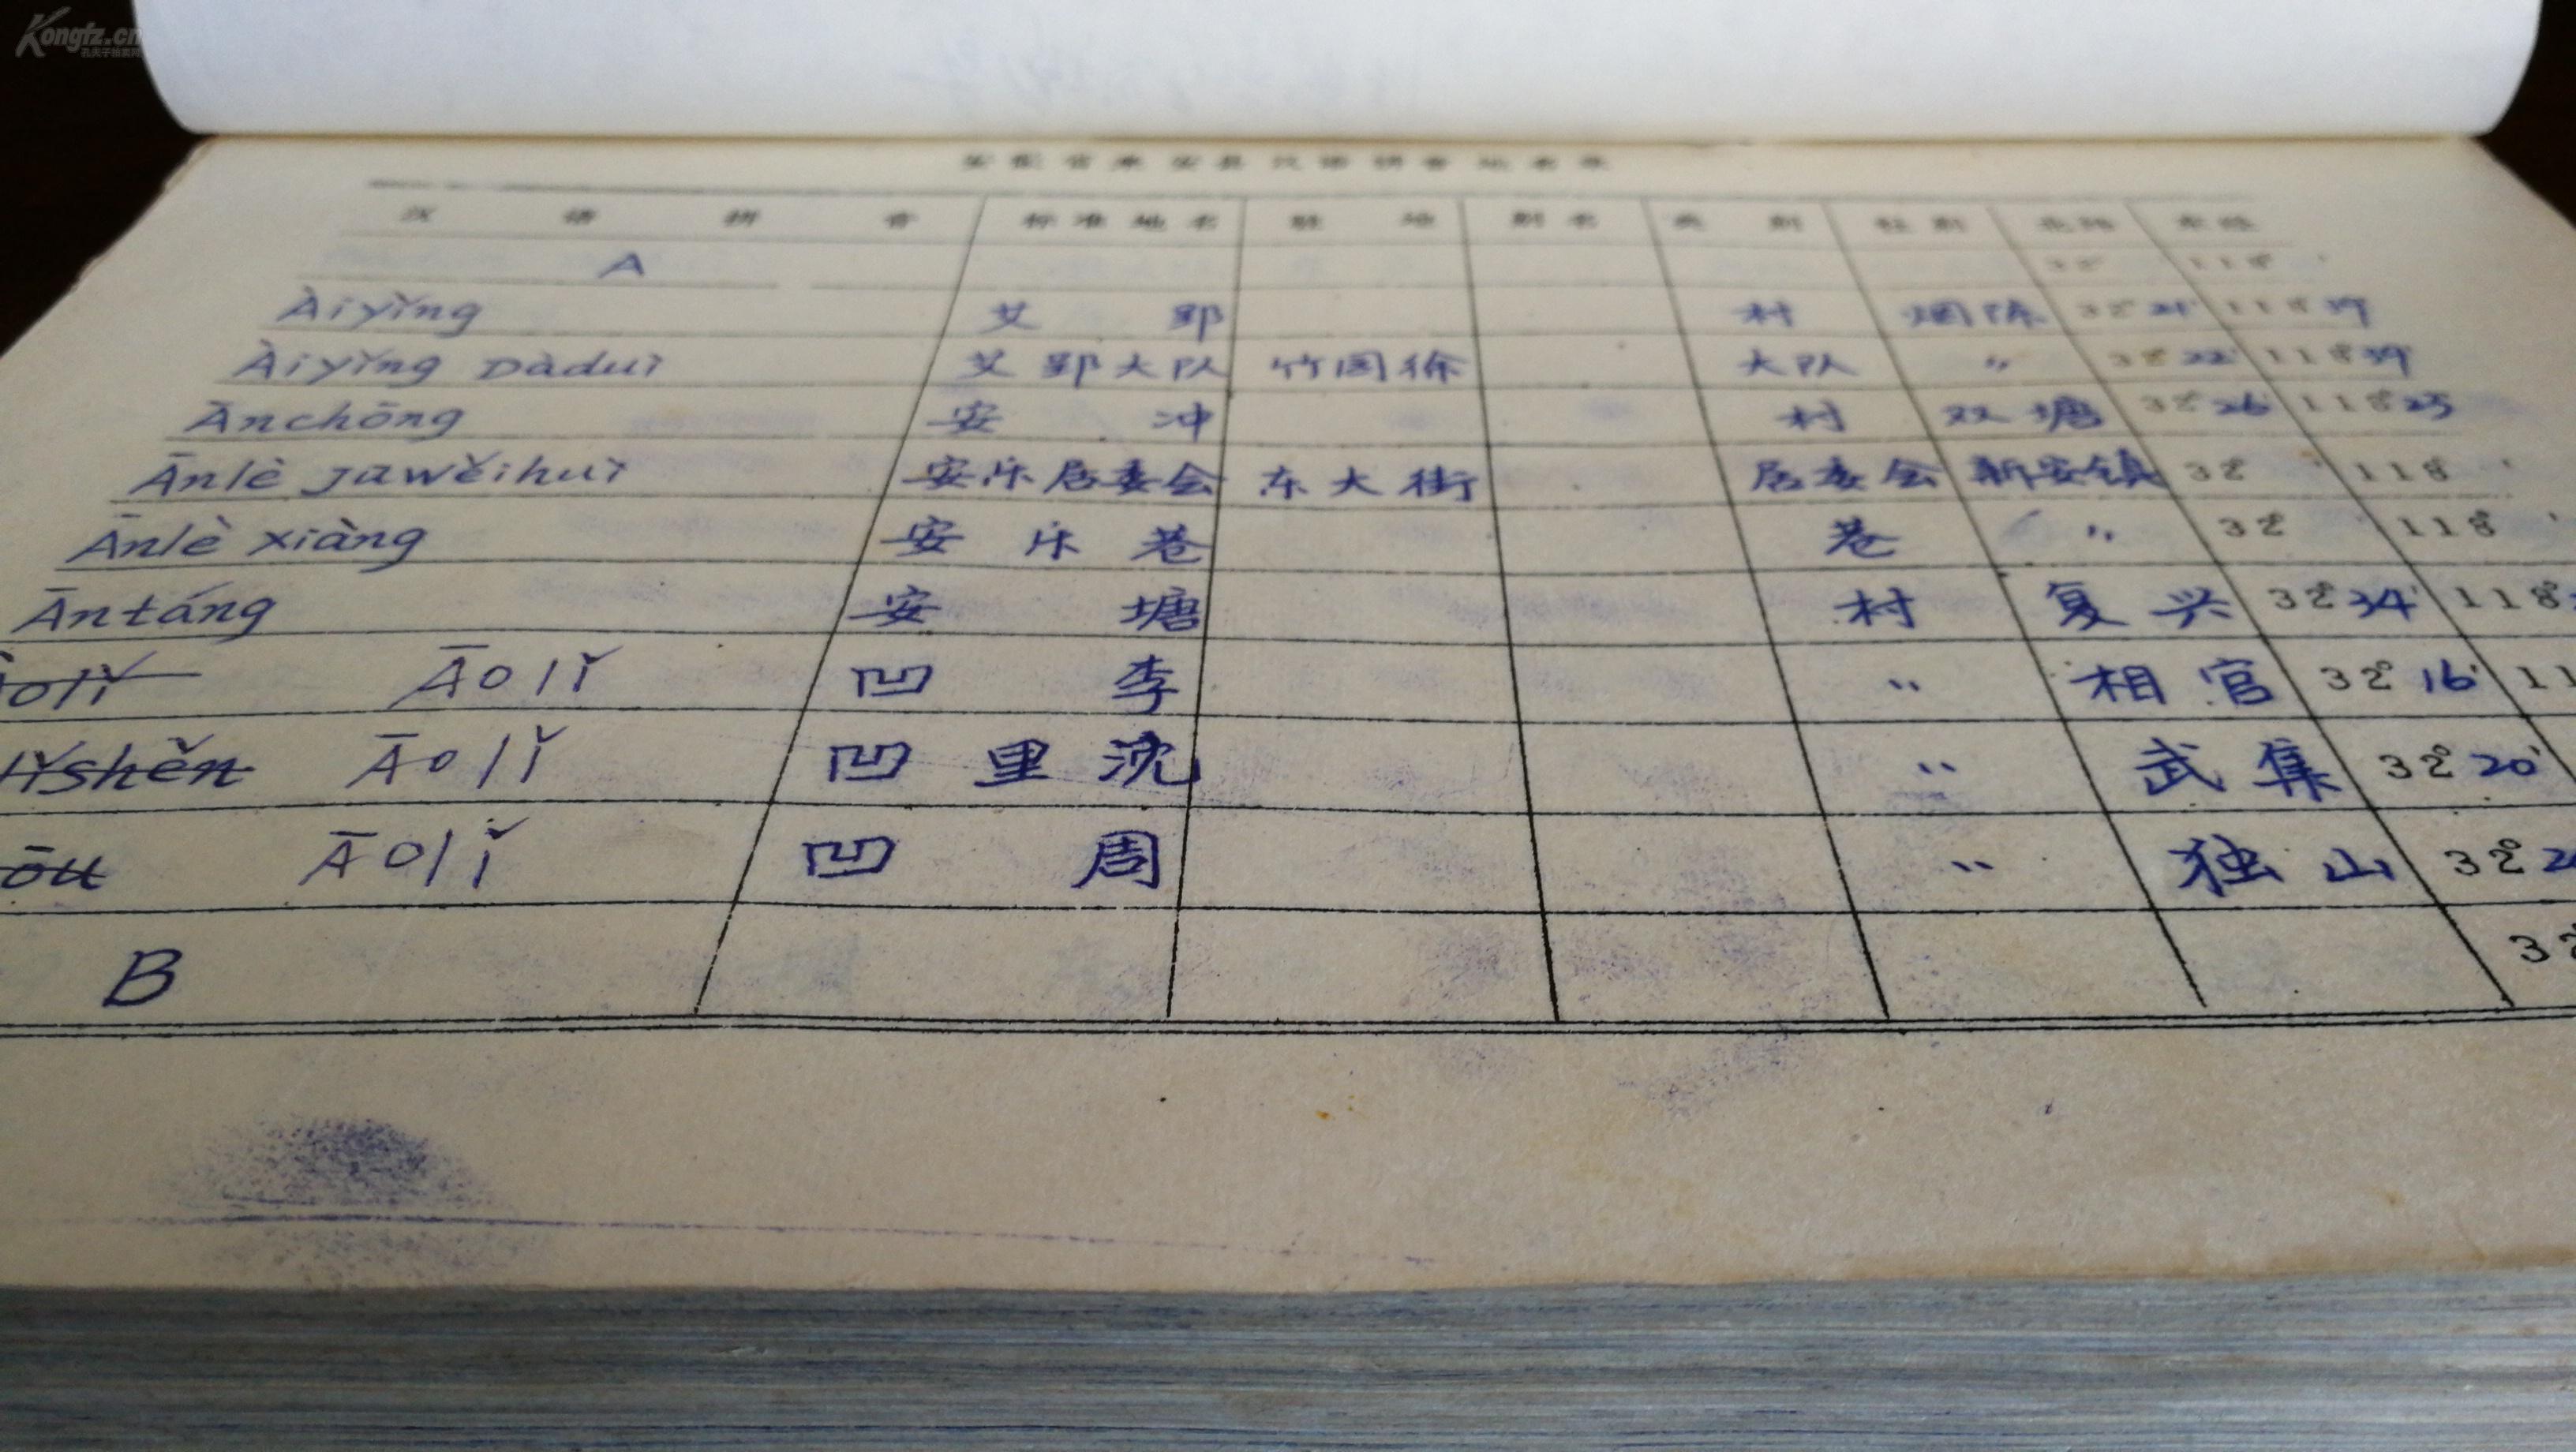 Kongfz.cn
安徽省来安县汉语拼音地名录
汉语拼音 标准地名 驻地 别名 类别 社别 北纬 东经
A 32° 118° ′
Àiyǐng 艾郢 村 烟陈 32°21′ 118°39′
Àiyǐng Dàduì 艾郢大队 竹园徐 大队 〃 32°22′ 118°39′
Ānchōng 安冲 村 双塘 32°26′ 118°25′
Ānlè Jūwěihuì 安乐居委会 东大街 居委会 新安镇 32° ′ 118° ′
Ānlè xiàng 安乐巷 巷 〃 32° 118° ′
Āntáng 安塘 村 复兴 32°34′ 118°
olǐ Āolǐ 凹李 〃 相官 32°16′ 11
lǐshěn Āolǐ 凹里沈 〃 武集 32°20′
ōu Āolǐ 凹周 〃 独山 32°2
B 32